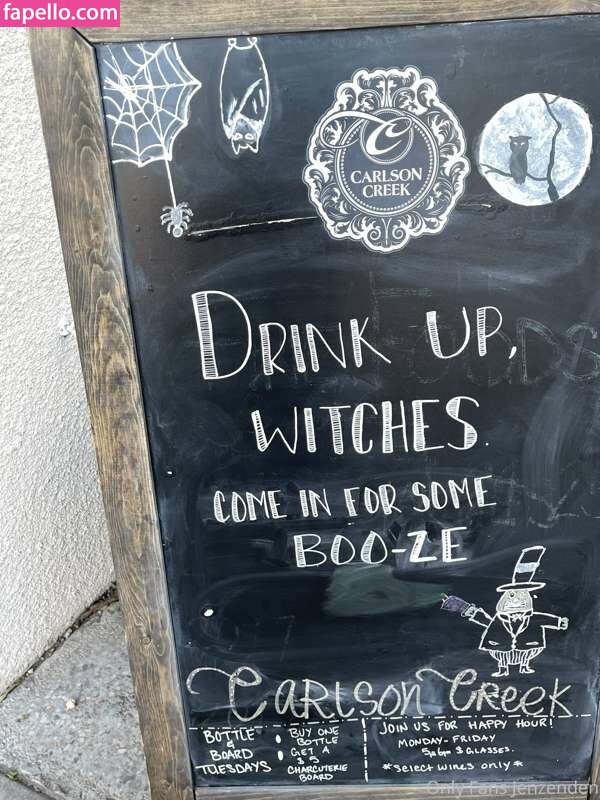 fapello.com
CARLSON
CREEK
DRINK UP,
WITCHES.
COME IN FOR SOME
BOO-ZE
CARLSON CREEK
BOTTLE
&
BOARD
TUESDAYS
• BUY ONE
BOTTLE
• GET A
$5
CHARCUTERIE
BOARD
JOIN US FOR HAPPY HOUR!
MONDAY-FRIDAY
$ GLASSES.
*SELECT WINES ONLY*
OnlyFans jenzenden